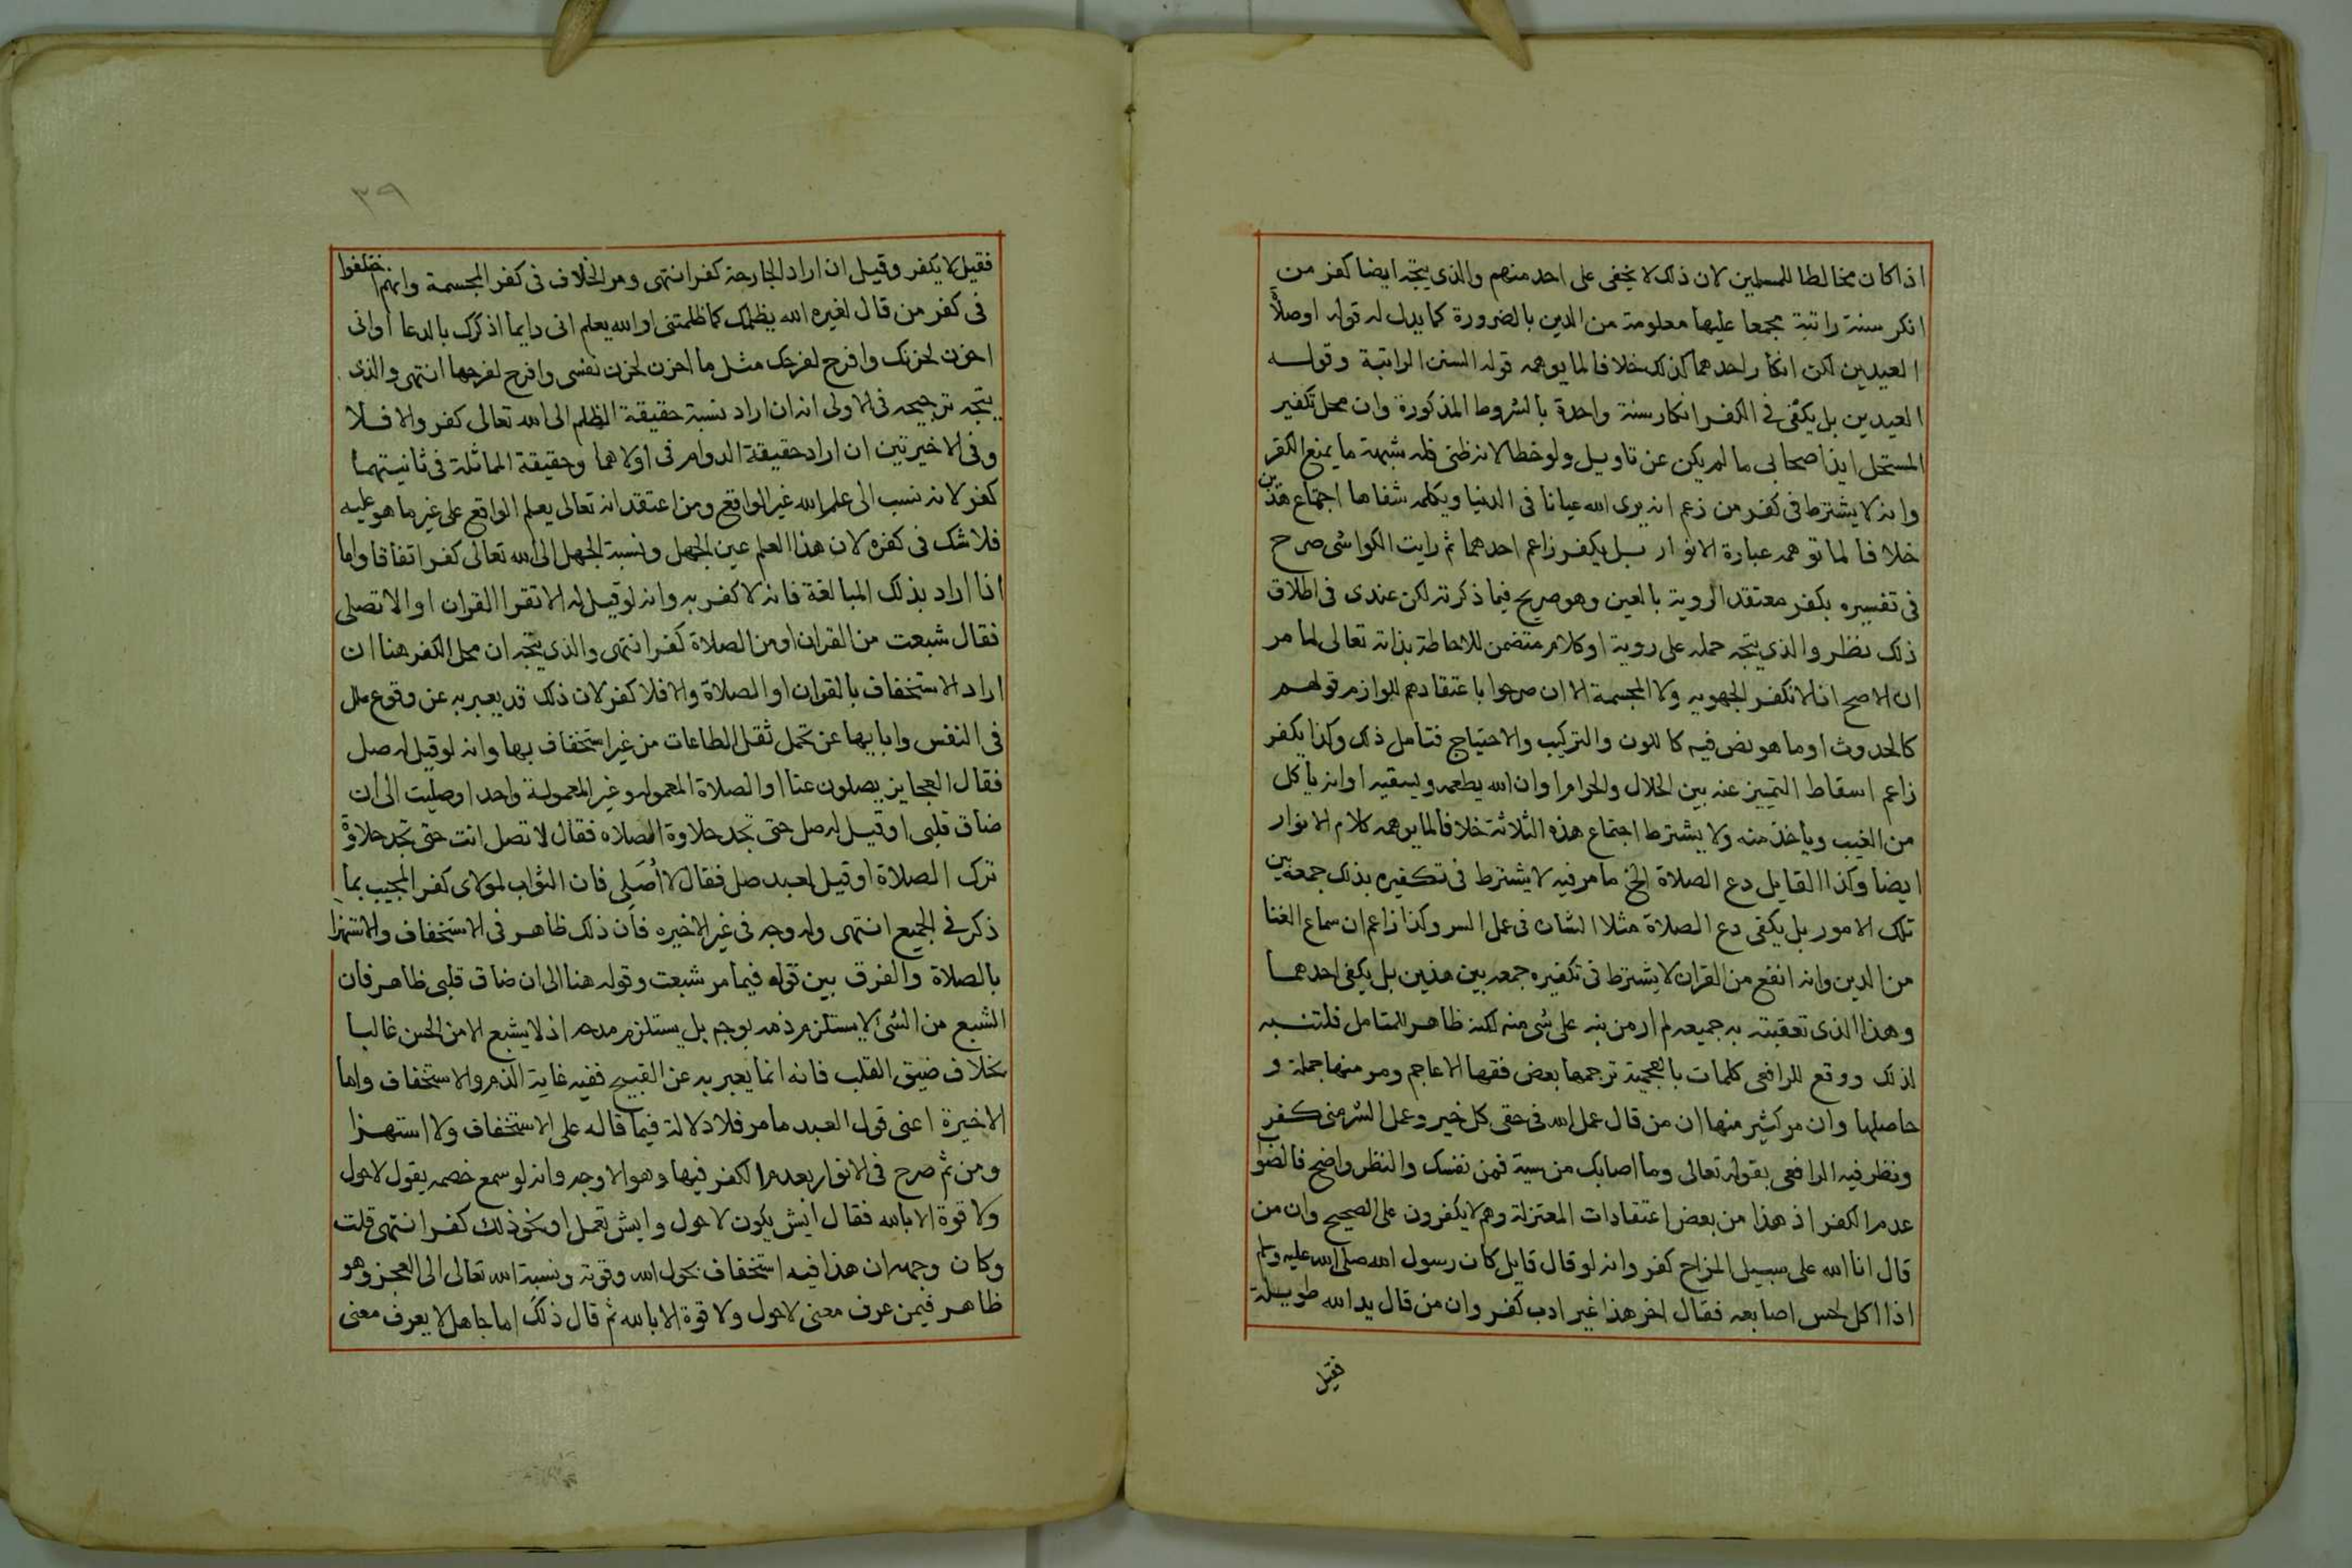 اذا كان مخالطا للمسلمين لان ذلك لا يخفى على احد منهم والذى يتجه ايضا كفر من
انكر سنة راتبة مجمعا عليها معلومة من الدين بالضرورة كما يدل له قوله او صلاة
العيدين لكن انكار احدهما كذلك خلافا لما يوهمه قوله السنن الراتبة وقوله
العيدين بل يكفى فى الكفر انكار سنة واحدة بالشروط المذكورة وان محل تكفير
المستحل ايذا صحابى ما لم يكن عن تاويل ولو خطا لانه ظنى فله شبهة ما يمنع الكفر
وانه لا يشترط فى كفر من زعم انه يرى الله عيانا فى الدنيا ويكلمه شفاها اجتماع هذين
خلافا لما توهمه عبارة الانوار بل يكفر زاعم احدهما ثم رايت الكواشى صرح
فى تفسيره بكفر معتقد الروية بالعين وهو صريح فيما ذكرته لكن عندى فى اطلاق
ذلك نظر والذى يتجه حمله على روية او كلام متضمن للاحاطة بذاته تعالى لما مر
ان الاصح انا لا نكفر الجهويه ولا المجسمة الا ان صرحوا باعتقادهم للوازم قولهم
كالحدوث او ما هو نص فيه كاللون والتركيب والاحتياج فتامل ذلك وكذا يكفر
زاعم اسقاط التمييز عنه بين الحلال والحرام او ان الله يطعمه ويسقيه او انه ياكل
من الغيب وياخذ منه ولا يشترط اجتماع هذه الثلاثة خلافا لما يوهمه كلام الانوار
ايضا وكذا القايل دع الصلاة الخ ما مر فيه لا يشترط فى تكفيره بذلك جمعه بين
تلك الامور بل يكفى دع الصلاة مثلا الشان فى عمل السر وكذا زاعم ان سماع الغنا
من الدين وانه انفع من القران لا يشترط فى تكفيره جمعه بين هذين بل يكفى احدهما
وهذا الذى تعقبته به جميعه لم ار من نبه على شى منه لكنه ظاهر للمتامل فلتنبه
لذلك ووقع للرافعى كلمات بالعجمية ترجمها بعض فقها الاعاجم ومر منها جملة و
حاصلها وان مر كثير منها ان من قال عمل الله فى حقى كل خير وعمل الشر منى كفر
ونظر فيه الرافعى بقوله تعالى وما اصابك من سية فمن نفسك والنظر واضح فالصواب
عدم الكفر اذ هذا من بعض اعتقادات المعتزلة وهم لا يكفرون على الصحيح وان من
قال انا الله على سبيل المزاح كفر وانه لو قال قايل كان رسول الله صلى الله عليه وسلم
اذا اكل لحس اصابعه فقال اخر هذا غير ادب كفر وان من قال يد الله طويلة
فقيل
٣٩
فقيل لا يكفر وقيل ان اراد الجارحة كفر انتهى ومر الخلاف فى كفر المجسمة وانهم اختلفوا
فى كفر من قال لغيره الله يظلمك كما ظلمتنى او الله يعلم انى دايما اذكرك بالدعا او انى
احزن لحزنك وافرح لفرحك مثل ما احزن لحزن نفسى وافرح لفرحها انتهى والذى
يتجه ترجيحه فى الاولى انه ان اراد نسبة حقيقة الظلم الى الله تعالى كفر والا فلا
وفى الاخيرتين ان اراد حقيقة الدوام فى اولاهما وحقيقة المماثلة فى ثانيتهما
كفر لانه نسب الى علم الله غير الواقع ومن اعتقد انه تعالى يعلم الواقع على غير ما هو عليه
فلا شك فى كفره لان هذا العلم عين الجهل ونسبة الجهل الى الله تعالى كفر اتفاقا واما
اذا اراد بذلك المبالغة فانه لا كفر به وانه لو قيل له الا تقرا القران او الا تصلى
فقال شبعت من القران او من الصلاة كفر انتهى والذى يتجه ان محل الكفر هنا ان
اراد الاستخفاف بالقران او الصلاة والا فلا كفر لان ذلك قد يعبر به عن وقوع ملل
فى النفس وابايها عن تحمل ثقل الطاعات من غير استخفاف بها وانه لو قيل له صل
فقال العجايز يصلون عنا او الصلاة المعموله وغير المعمولة واحد او صليت الى ان
ضاق قلبى او قيل له صل حتى تجد حلاوة الصلاه فقال لا تصل انت حتى تجد حلاوة
ترك الصلاة او قيل لعبد صل فقال لا اصلى فان الثواب لمولاى كفر المجيب بما
ذكر فى الجميع انتهى وله وجه فى غير الاخيره فان ذلك ظاهر فى الاستخفاف والاستهزا
بالصلاة والفرق بين قوله فيما مر شبعت وقوله هنا الى ان ضاق قلبى ظاهر فان
الشبع من الشئ لا يستلزم ذمه بوجه بل يستلزم مدحه اذ لا يشبع الا من الحسن غالبا
بخلاف ضيق القلب فانه انما يعبر به عن القبيح ففيه غاية الذم والاستخفاف واما
الاخيرة اعنى قول العبد ما مر فلا دلالة فيما قاله على الاستخفاف ولا استهزا
ومن ثم صرح فى الانوار بعدم الكفر فيها وهو الاوجه وانه لو سمع خصمه يقول لا حول
ولا قوة الا بالله فقال ايش يكون لا حول وايش تعمل او نحو ذلك كفر انتهى قلت
وكان وجهه ان هذا فيه استخفاف بحول الله وقوته ونسبة الله تعالى الى العجز وهو
ظاهر فيمن عرف معنى لا حول ولا قوة الا بالله ثم قال ذلك اما جاهل لا يعرف معنى